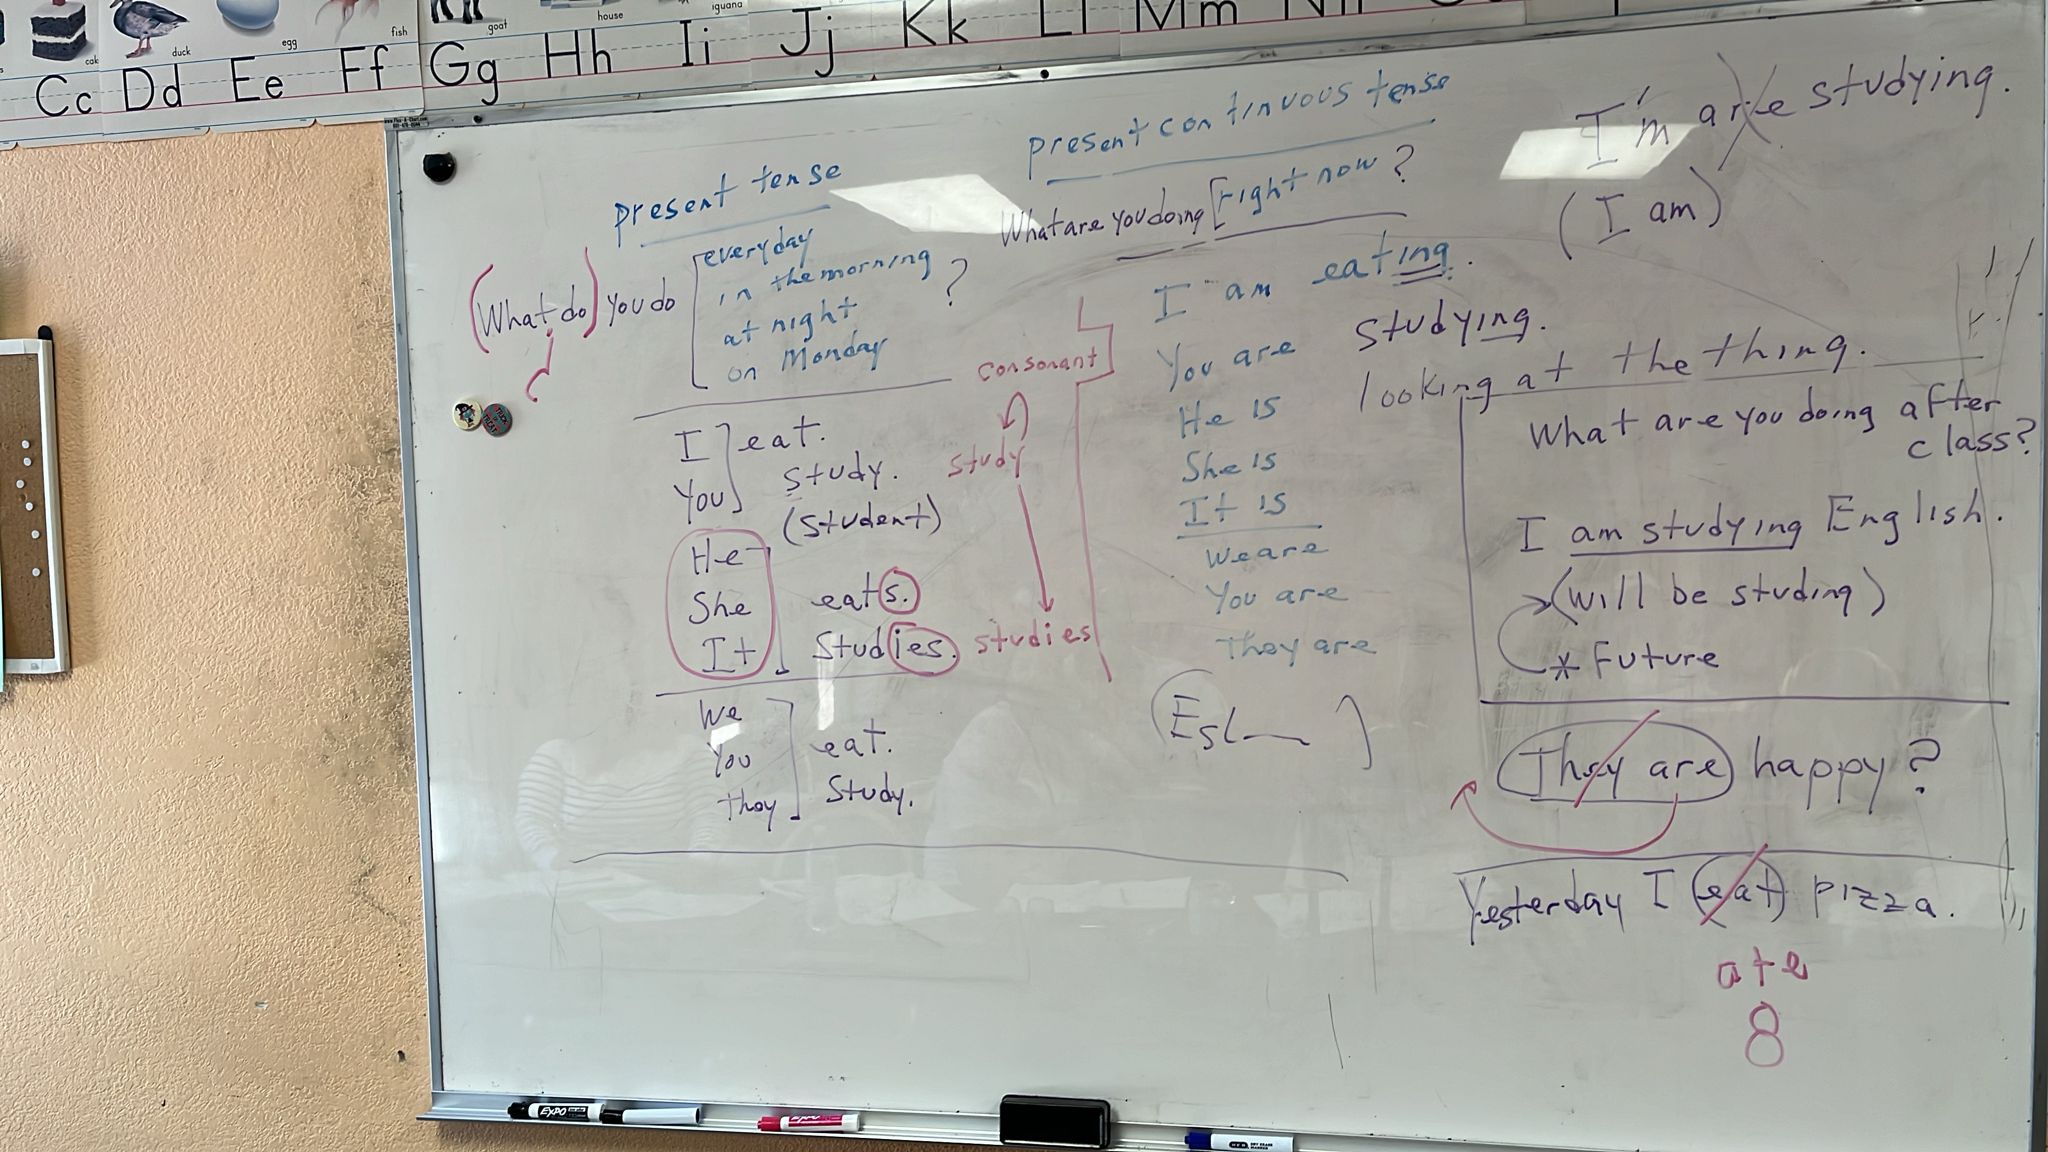 cak
duck
egg
fish
goat
house
iguana
Cc Dd Ee Ff Gg Hh Ii Jj Kk Ll Mm Nn
present tense
(What do) you do
everyday
in the morning
at night
on Monday
?
I
You
eat.
study.
(student)
He
She
It
eats.
studies.
We
You
they
eat.
study.
consonant
study
studies
present continuous tense
What are you doing right now?
I am eating.
studying.
looking at the thing.
You are
He is
She is
It is
We are
You are
They are
I'm are studying.
(I am)
What are you doing after
class?
I am studying English.
(will be studing)
* Future
They are happy?
Yesterday I eat pizza.
ate
8
EXPO